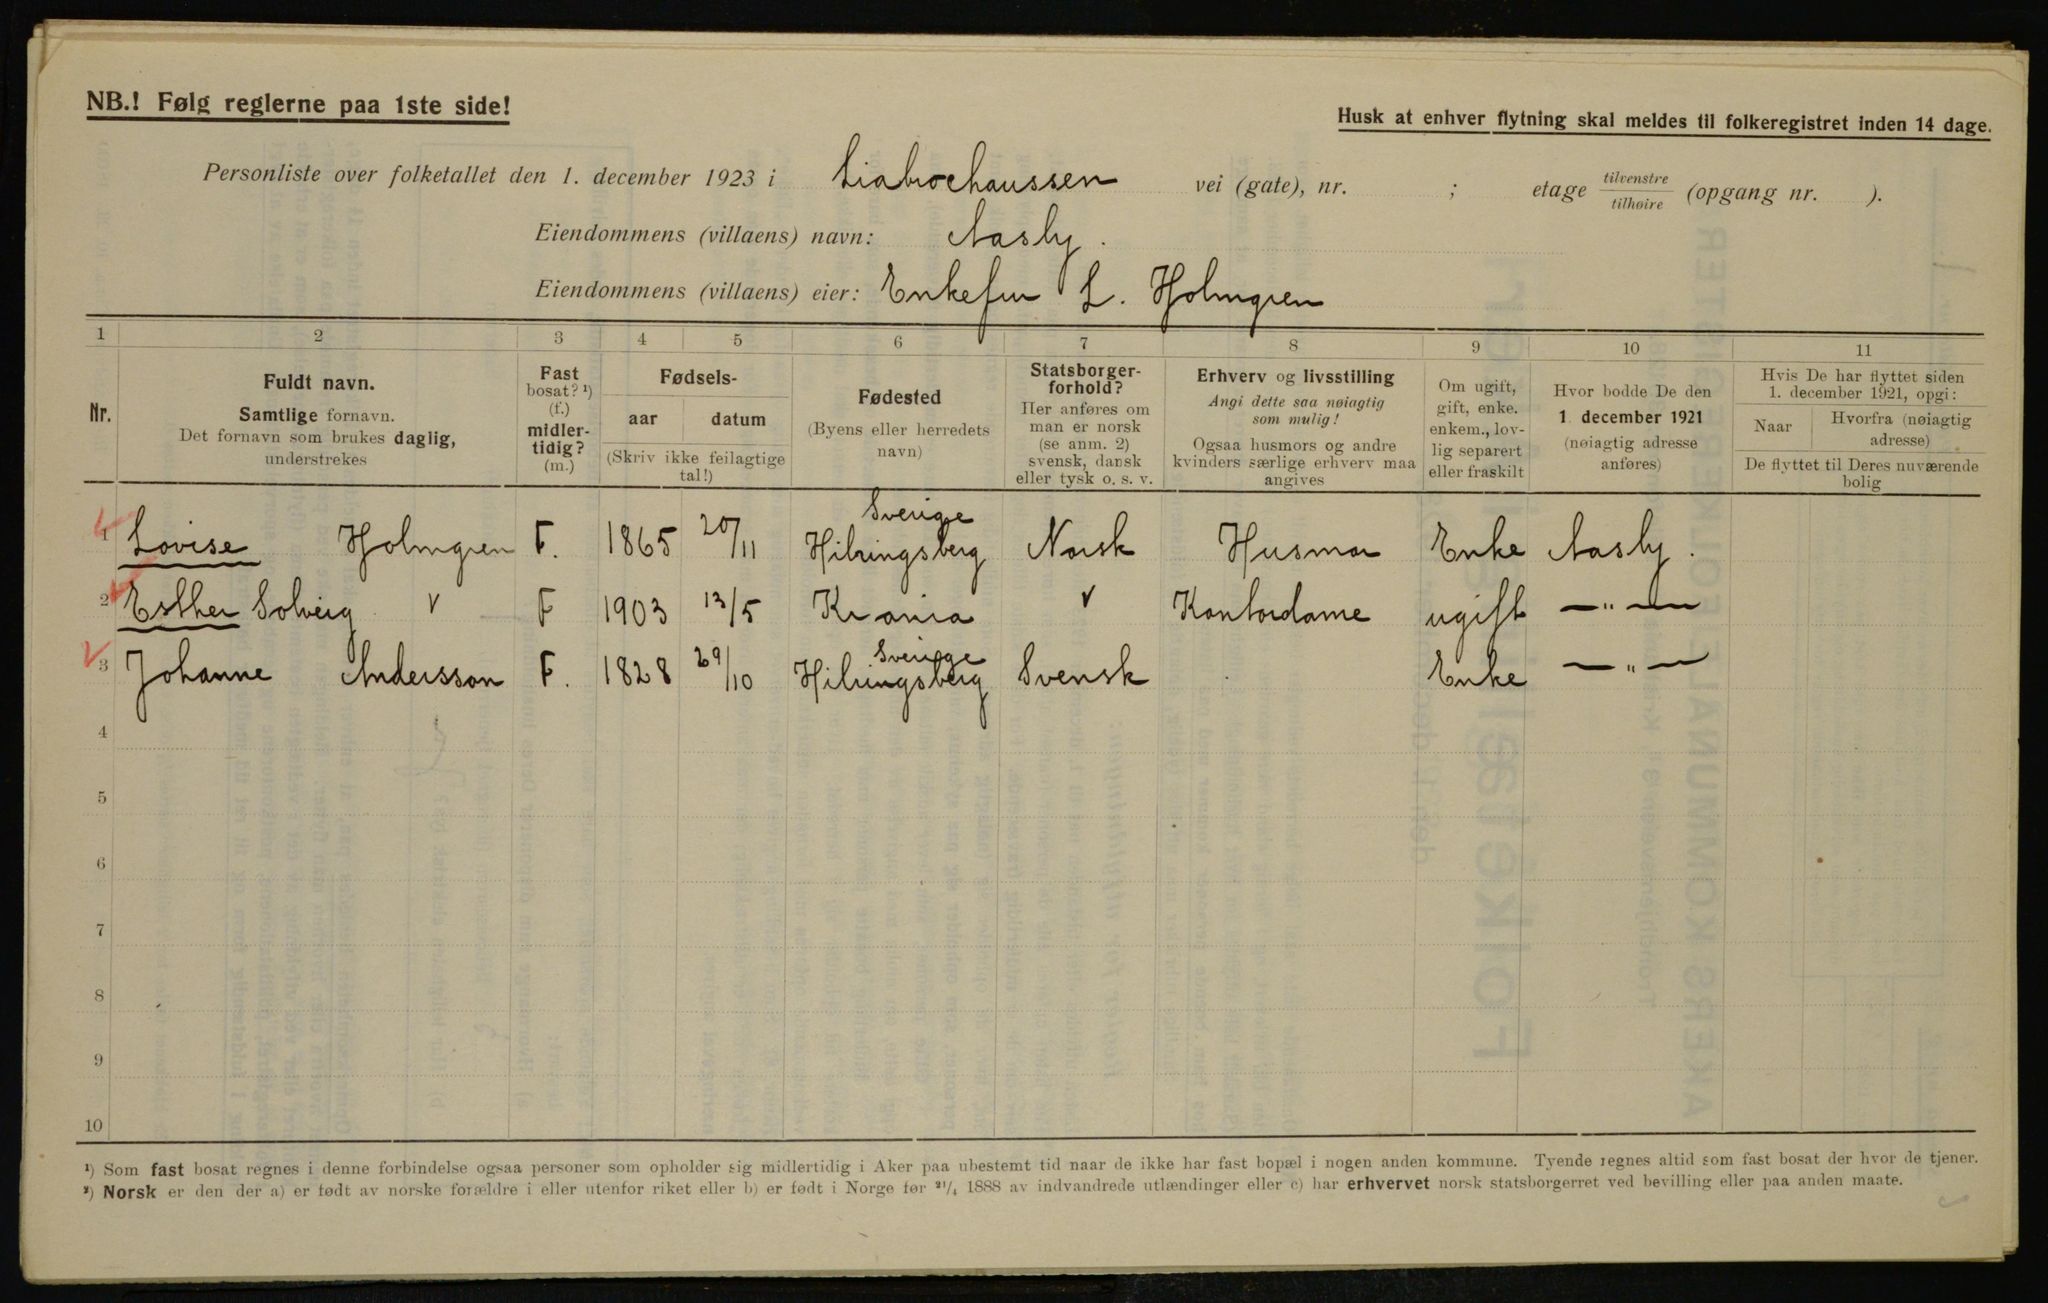 NB.! Følg reglerne paa 1ste side!
Husk at enhver flytning skal meldes til folkeregistret inden 14 dage.
Personliste over folketallet den 1. december 1923 i Liabrochaussen vei (gate), nr. ; etage tilvenstre tilhøire (opgang nr. ).
Eiendommens (villaens) navn: Aasly.
Eiendommens (villaens) eier: Enkefru L. Holmgren
1 2 3 4 5 6 7 8 9 10 11
Nr.
Fuldt navn.
Samtlige fornavn.
Det fornavn som brukes daglig,
understrekes
Fast
bosat? ¹)
(f.)
midler-
tidig?
(m.)
Fødsels-
aar datum
(Skriv ikke feilagtige
tal!)
Fødested
(Byens eller herredets
navn)
Statsborger-
forhold?
Her anføres om
man er norsk
(se anm. 2)
svensk, dansk
eller tysk o. s. v.
Erhverv og livsstilling
Angi dette saa nøiagtig
som mulig!
Ogsaa husmors og andre
kvinders særlige erhverv maa
angives
Om ugift,
gift, enke.
enkem., lov-
lig separert
eller fraskilt
Hvor bodde De den
1. december 1921
(nøiagtig adresse
anføres)
Hvis De har flyttet siden
1. december 1921, opgi:
Naar Hvorfra (nøiagtig
adresse)
De flyttet til Deres nuværende
bolig
Sverige
1 Lovise Holmgren F. 1865 20/11 Hilringsberg Norsk Husmor Enke Aasly.
2 Esther Solveig " F 1903 13/5 Krania " Kontordame ugift — " —
Sverige
3 Johanne Andersson F. 1828 29/10 Hilringsberg Svensk Enke — " —
4
5
6
7
8
9
10
¹) Som fast bosat regnes i denne forbindelse ogsaa personer som opholder sig midlertidig i Aker paa ubestemt tid naar de ikke har fast bopæl i nogen anden kommune. Tyende regnes altid som fast bosat der hvor de tjener.
²) Norsk er den der a) er født av norske forældre i eller utenfor riket eller b) er født i Norge før ²¹/₄ 1888 av indvandrede utlændinger eller c) har erhvervet norsk statsborgerret ved bevilling eller paa anden maate.